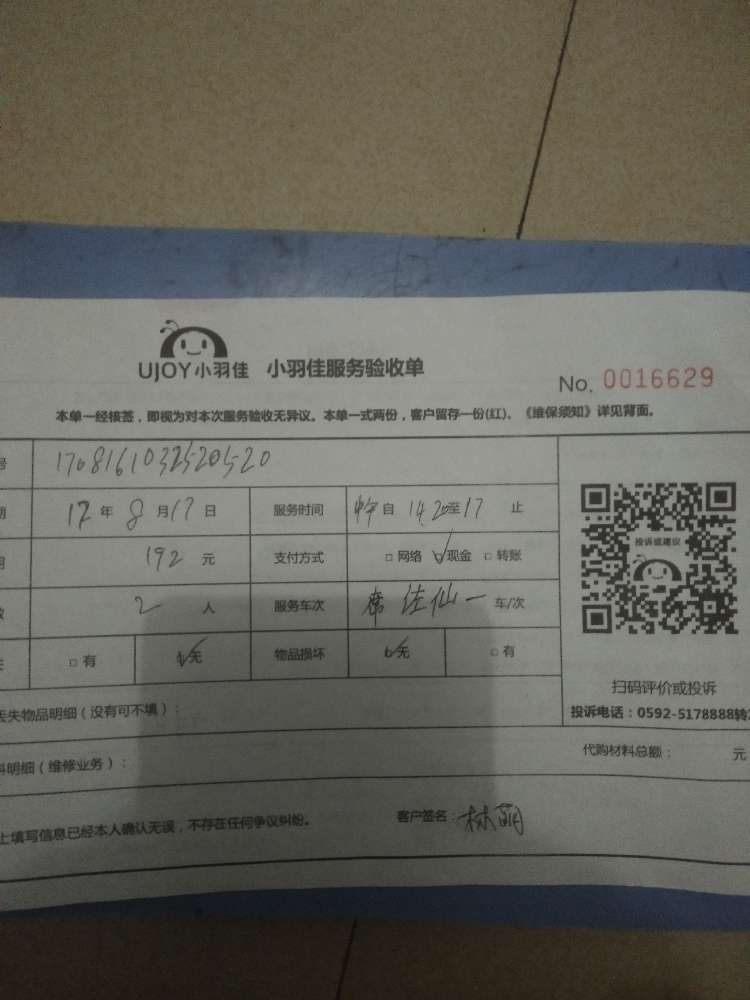 UJOY小羽佳 小羽佳服务验收单
No. 0016629
本单一经核签，即视为对本次服务验收无异议。本单一式两份，客户留存一份(红)、《维保须知》详见背面。
号 1708161032520520
17年8月17日 服务时间 自14.20至17止
192元 支付方式 网络 现金 转账
2人 服务车次 佳仙一车/次
投诉或建议
有 无 物品损坏 无 有
扫码评价或投诉
丢失物品明细（没有可不填）：
投诉电话：0592-5178888转
料明细（维修业务）：
代购材料总额： 元
上填写信息已经本人确认无误，不存在任何争议纠纷。
客户签名：林萌